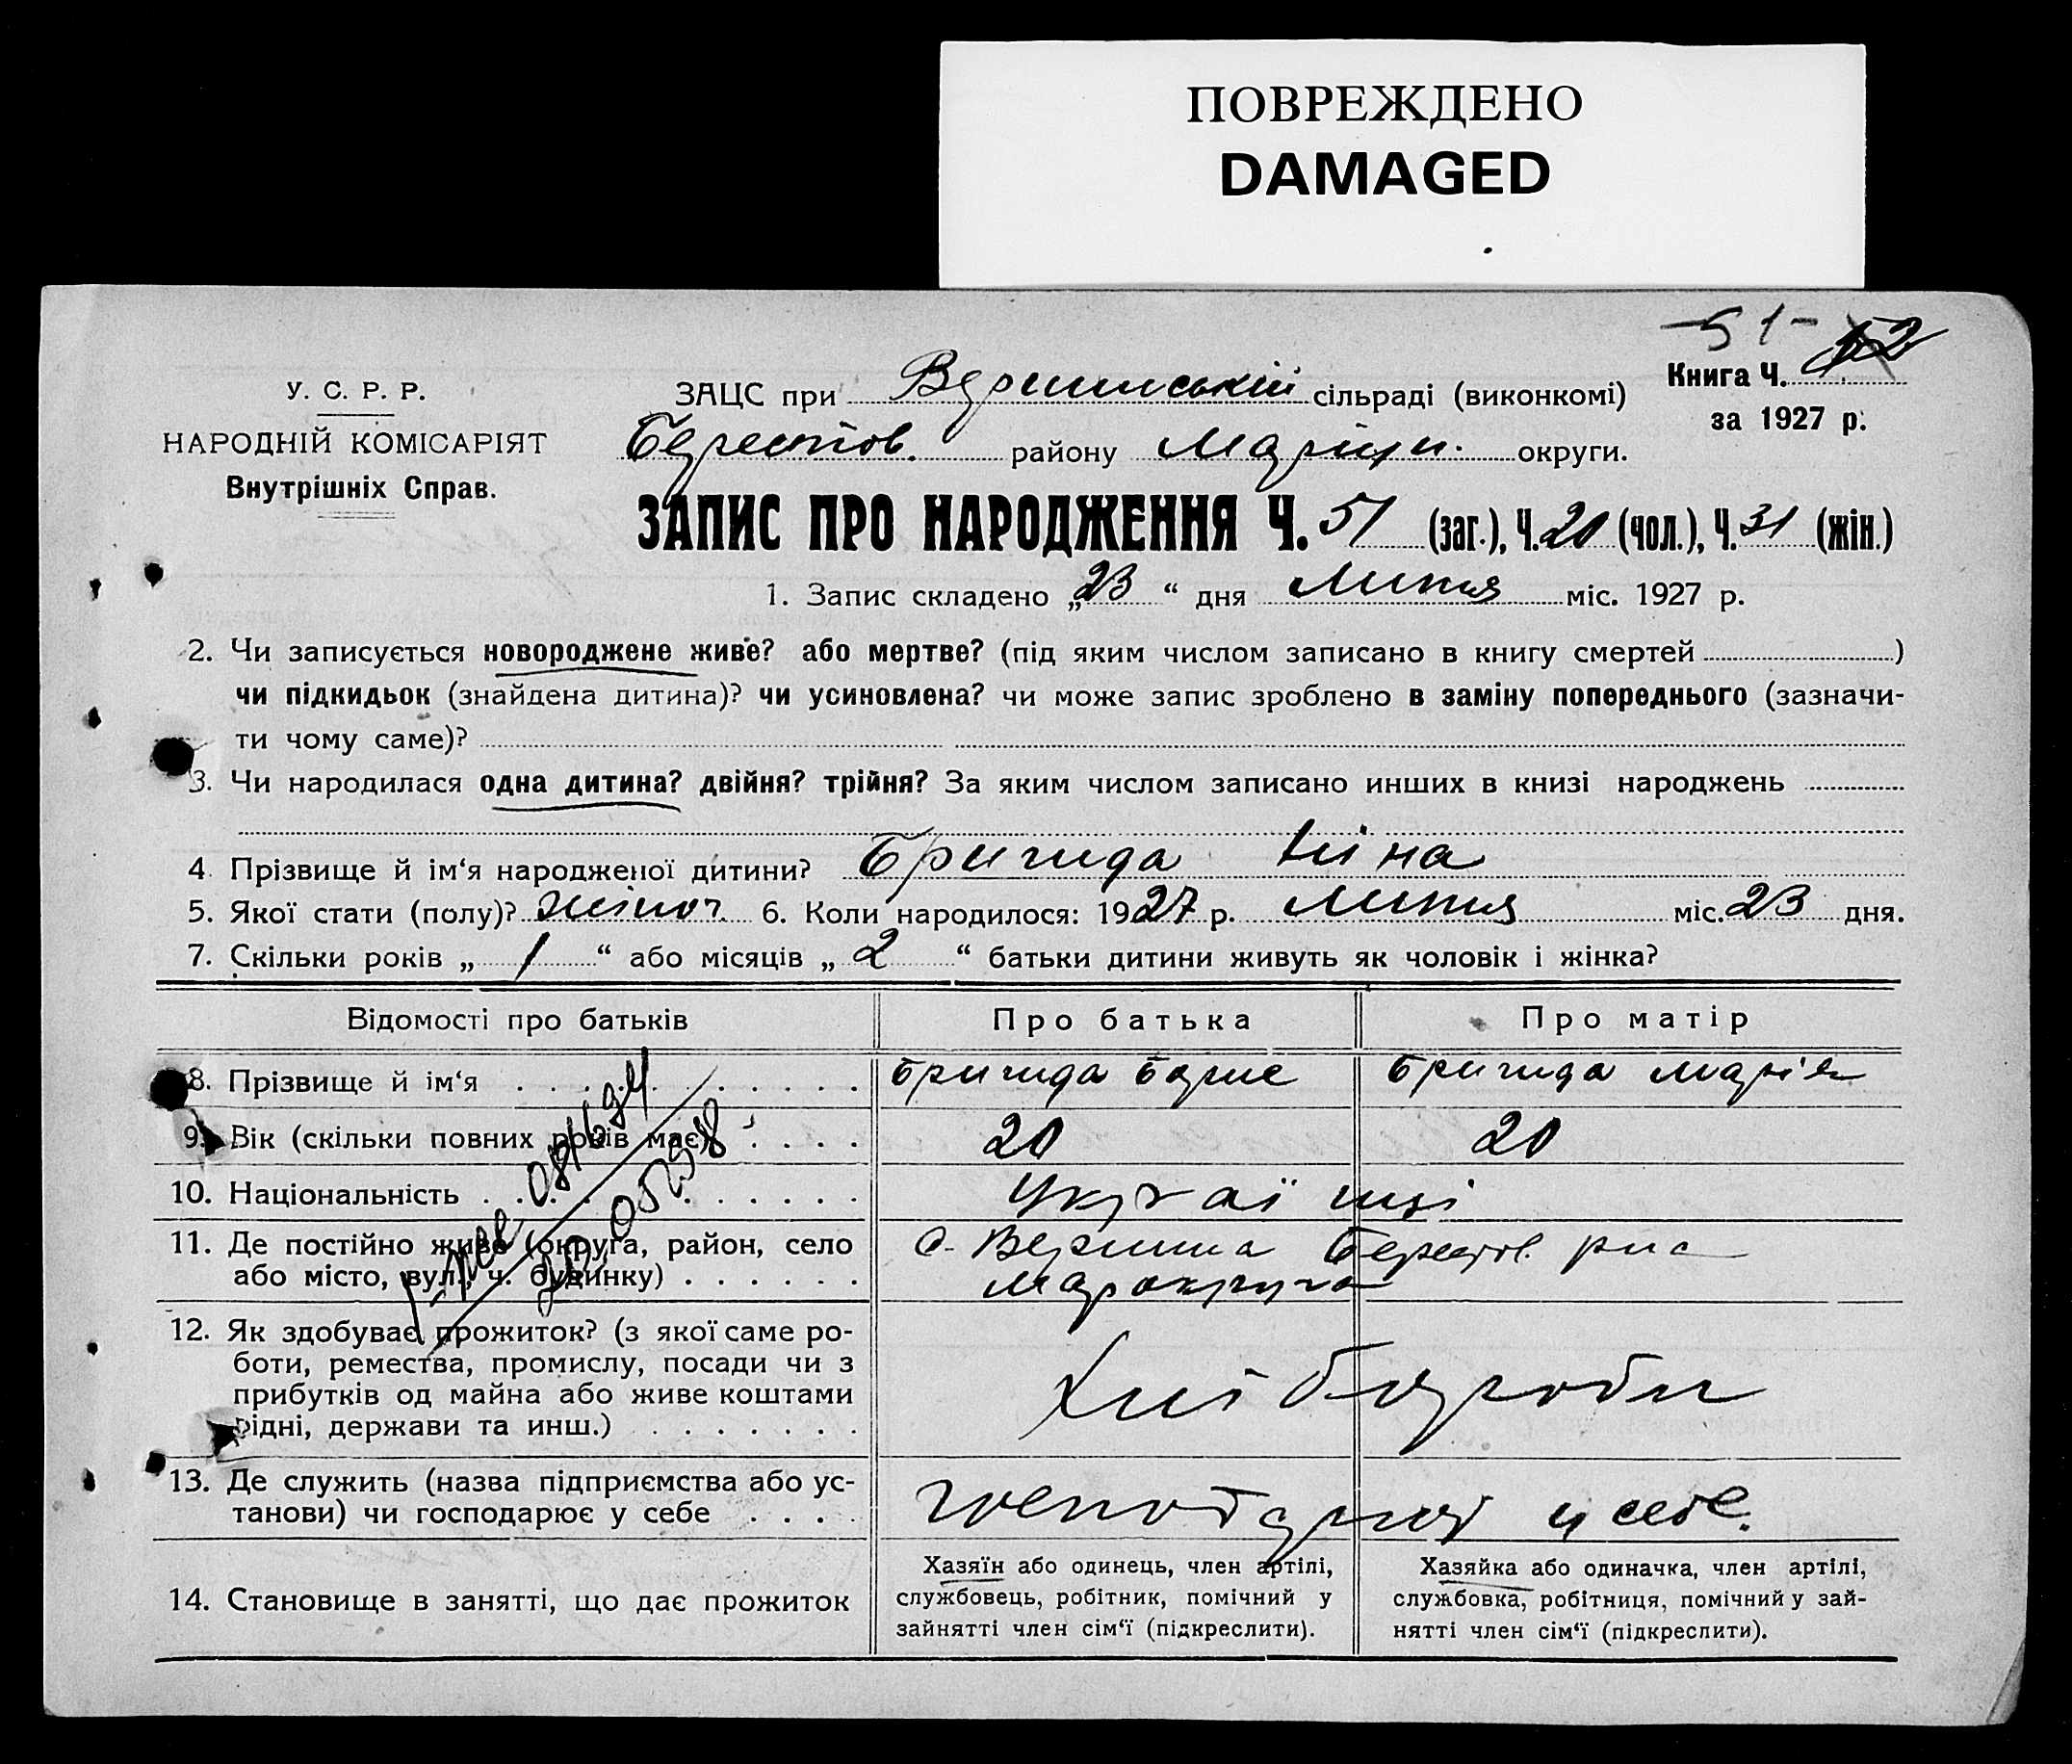 ПОВРЕЖДЕНО
DAMAGED
-51-
У. С. Р. Р.
НАРОДНІЙ КОМІСАРІЯТ
Внутрішніх Справ.
ЗАЦС при сільраді (виконкомі)
Берестов. району Маріюп. округи.
Книга Ч.
за 1927 р.
ЗАПИС ПРО НАРОДЖЕННЯ Ч. 51 (заг.), Ч. 20 (чол.), Ч. 31 (жін.)
1. Запис складено „23“ дня Липня міс. 1927 р.
2. Чи записується новороджене живе? або мертве? (під яким числом записано в книгу смертей )
чи підкидьок (знайдена дитина)? чи усиновлена? чи може запис зроблено в заміну попереднього (зазначи-
ти чому саме)?
3. Чи народилася одна дитина? двійня? трійня? За яким числом записано инших в книзі народжень
4. Прізвище й ім‘я народженої дитини? Бригида Ніна
5. Якої стати (полу)? жіноч. 6. Коли народилося: 1927 р. Липня міс. 23 дня.
7. Скільки років „ 1 “ або місяців „ 2 “ батьки дитини живуть як чоловік і жінка?
Відомості про батьків Про батька Про матір
8. Прізвище й ім‘я Бригида Борис Бригида Марія
9. Вік (скільки повних років має) 20 20
10. Національність Українці
11. Де постійно живе (округа, район, село
або місто, вул., ч. будинку)
с. Вершина Берестов. р-на
Марокруга
12. Як здобуває прожиток? (з якої саме ро-
боти, ремества, промислу, посади чи з
прибутків од майна або живе коштами
рідні, держави та инш.)
Хлібороби
13. Де служить (назва підприємства або ус-
танови) чи господарює у себе
господарюю у себе.
14. Становище в занятті, що дає прожиток
Хазяїн або одинець, член артілі,
службовець, робітник, помічний у
зайнятті член сім‘ї (підкреслити).
Хазяйка або одиначка, член артілі,
службовка, робітниця, помічний у зай-
нятті член сім‘ї (підкреслити).